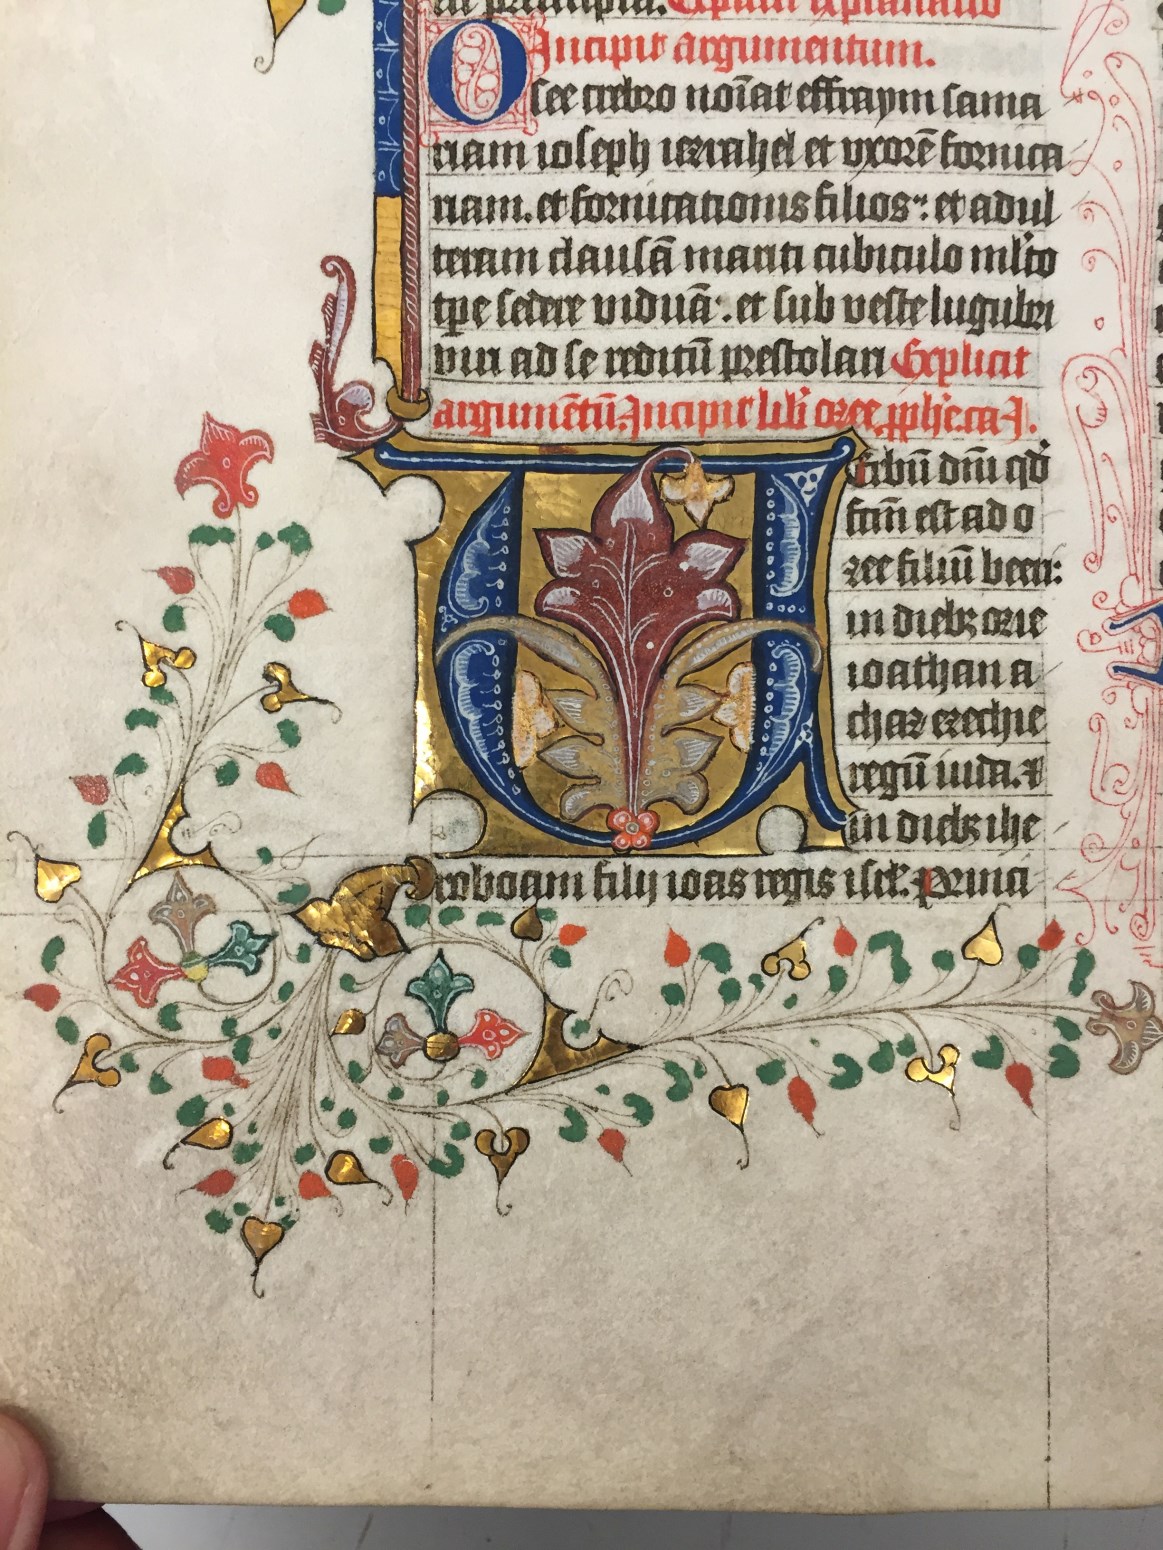 in principia. Explicit explanatio
Incipit argumentum.
Osee crebro noīat effraym sama
riam ioseph iezrahel et vxorē fornica
riam. et fornicationis filios: et adul
teram clausā mariti cubiculo mlto
tpe sedere viduā: et sub veste lugubri
viri ad se reditū prestolari Explicit
argumētū. Incipit libˀ ozee. pphe. ca. I.
Uerbū dm̄ qd
factū est ad o
zee filiū beeri:
in diebꝫ ozie
ioathan a
chaz ezechie
regū iuda. ⁊
in diebꝫ ihe
roboam filij ioas regis isrl. Princi